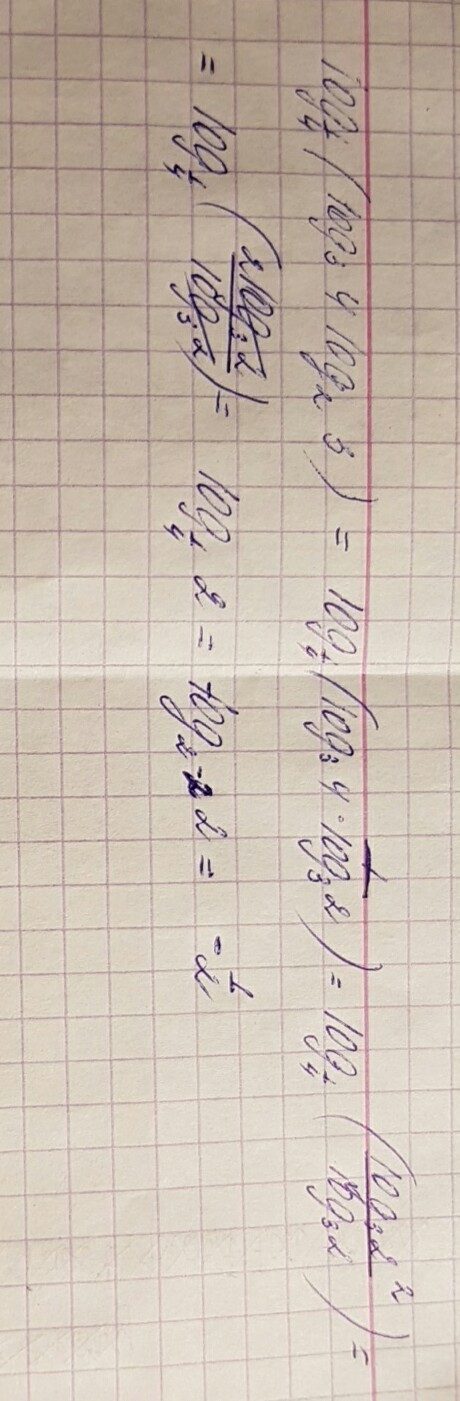 log_{1/4} (log_3 4 log_2 3) = log_{1/4} (log_3 4 · 1/log_3 2) = log_{1/4} (log_3 2^2 / log_3 2) =
= log_{1/4} (2 log_3 2 / log_3 2) = log_{1/4} 2 = log_{2^{-2}} 2 = -1/2